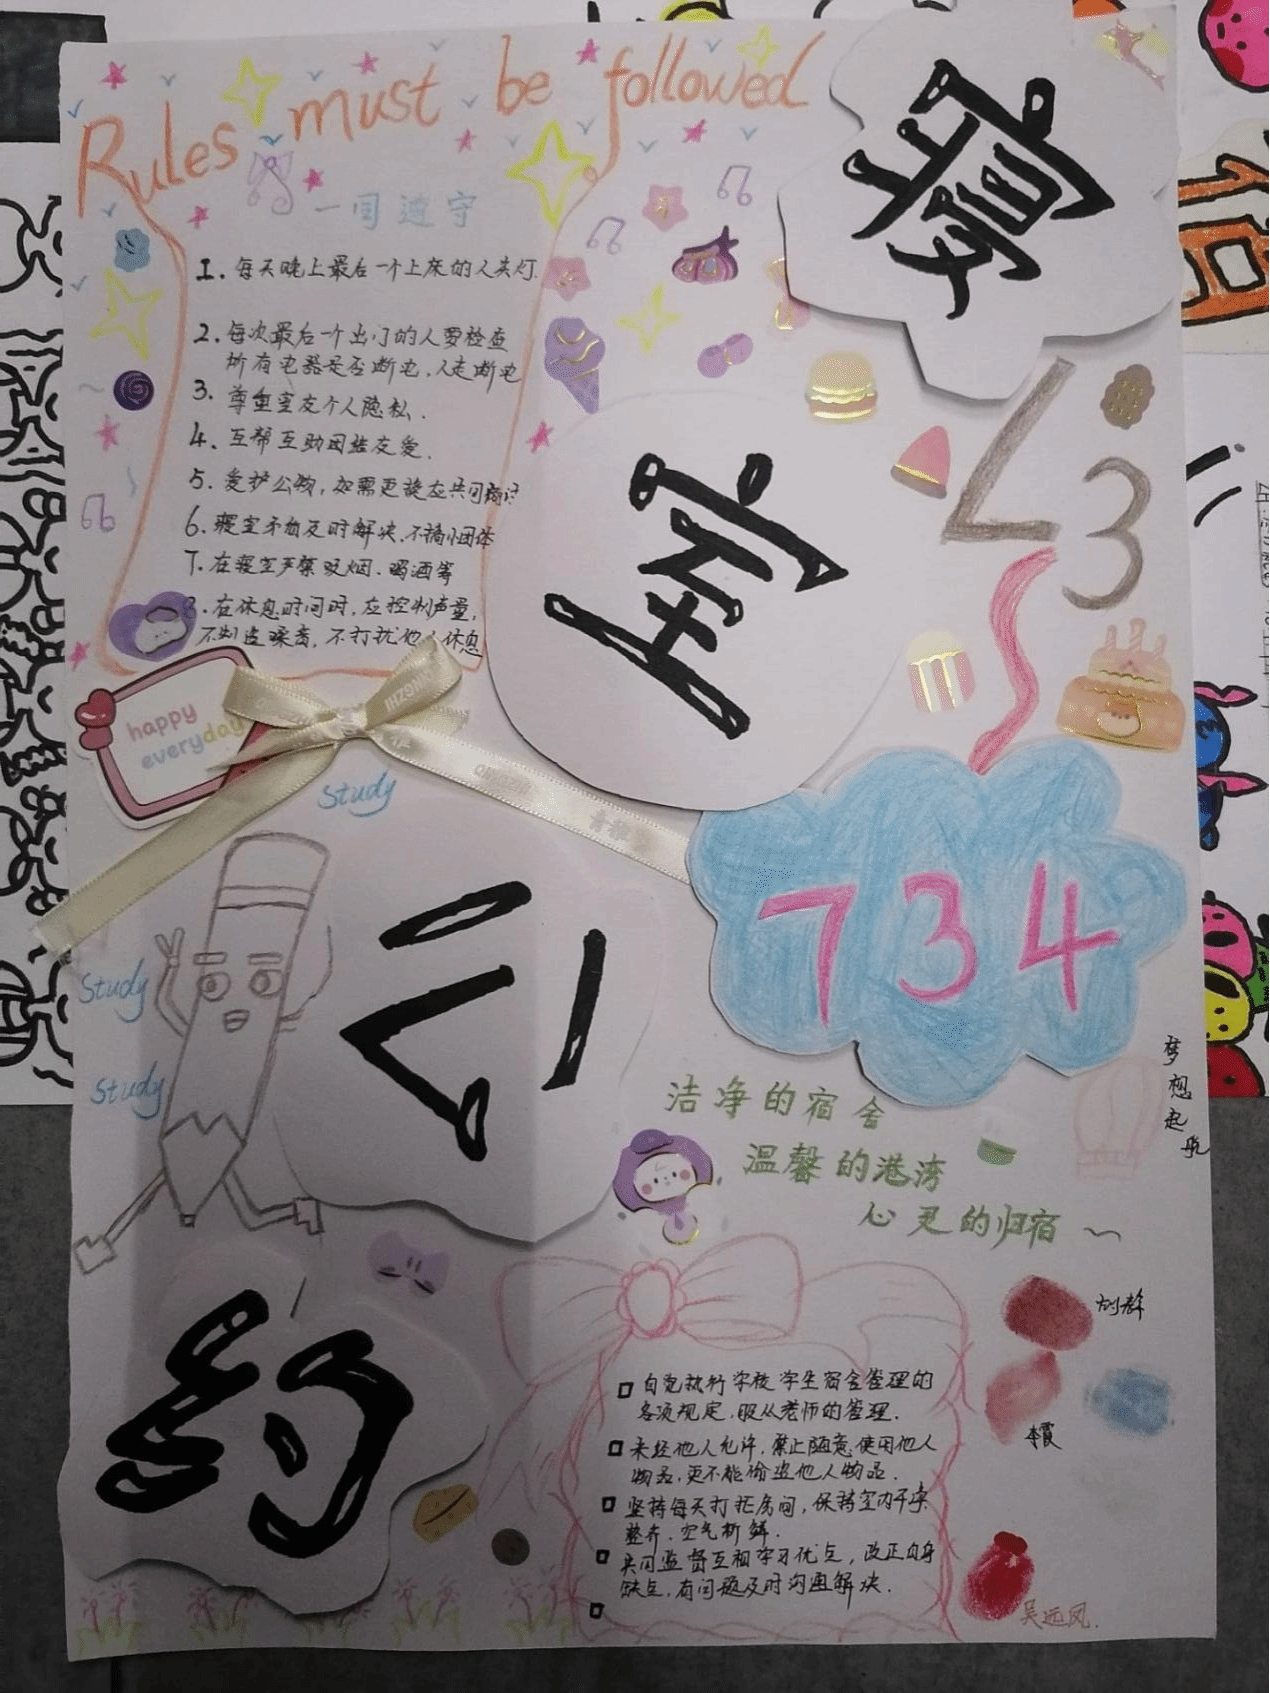 Rules must be followed
一同遵守
1. 每天晚上最后一个上床的人关灯
2. 每次最后一个出门的人要检查
所有电器是否断电,人走断电
3. 尊重室友个人隐私.
4. 互帮互助团结友爱.
5. 爱护公物,如需更换应共同商讨
6. 寝室矛盾及时解决,不搞小团体
7. 在寝室严禁吸烟、喝酒等
8. 在休息时间时,应控制声量,
不制造噪音,不打扰他人休息
寝
室
公
约
<3
happy
everyday
QINGZHI
study
study
study
734
梦想起航
洁净的宿舍
温馨的港湾
心灵的归宿~
自觉执行学校学生宿舍管理的
各项规定,服从老师的管理.
未经他人允许,禁止随意使用他人
物品,更不能偷盗他人物品.
坚持每天打扫房间,保持室内干净
整齐.空气新鲜.
共同监督互相学习优点,改正自身
缺点,有问题及时沟通解决.
李霞
吴远凤.